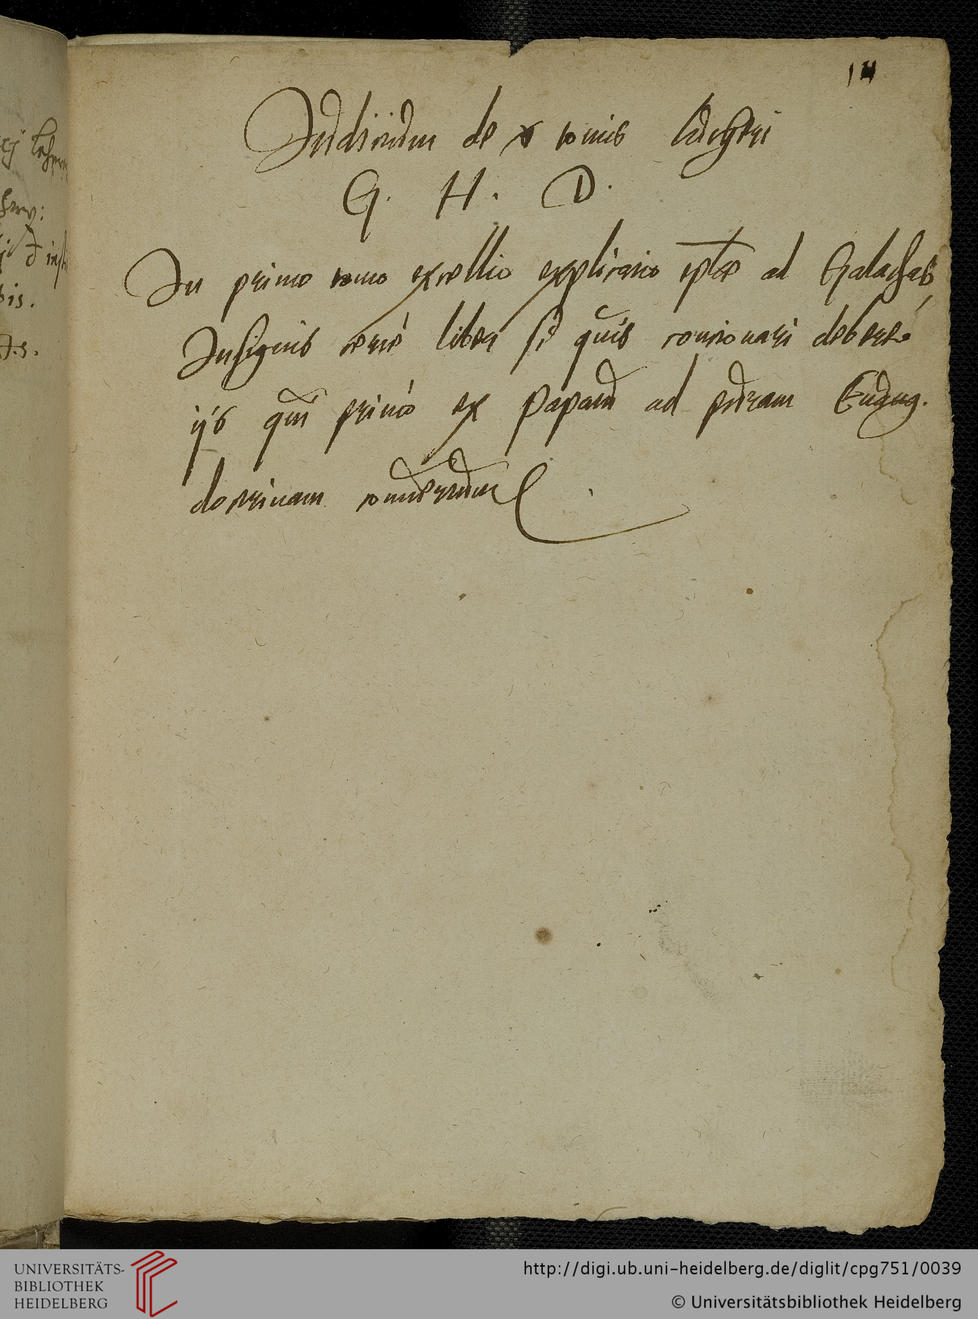 14
Iudicium de x tomis Lutheri
G. H. D.
In primo tomo excellit explicatio eplæ ad Galathas
Insignis certè liber si quis concionari deberet
ijs qui primò ex papatu ad puram Euang.
doctrinam conuertuntur
UNIVERSITÄTS-
BIBLIOTHEK
HEIDELBERG
http://digi.ub.uni-heidelberg.de/diglit/cpg751/0039
© Universitätsbibliothek Heidelberg